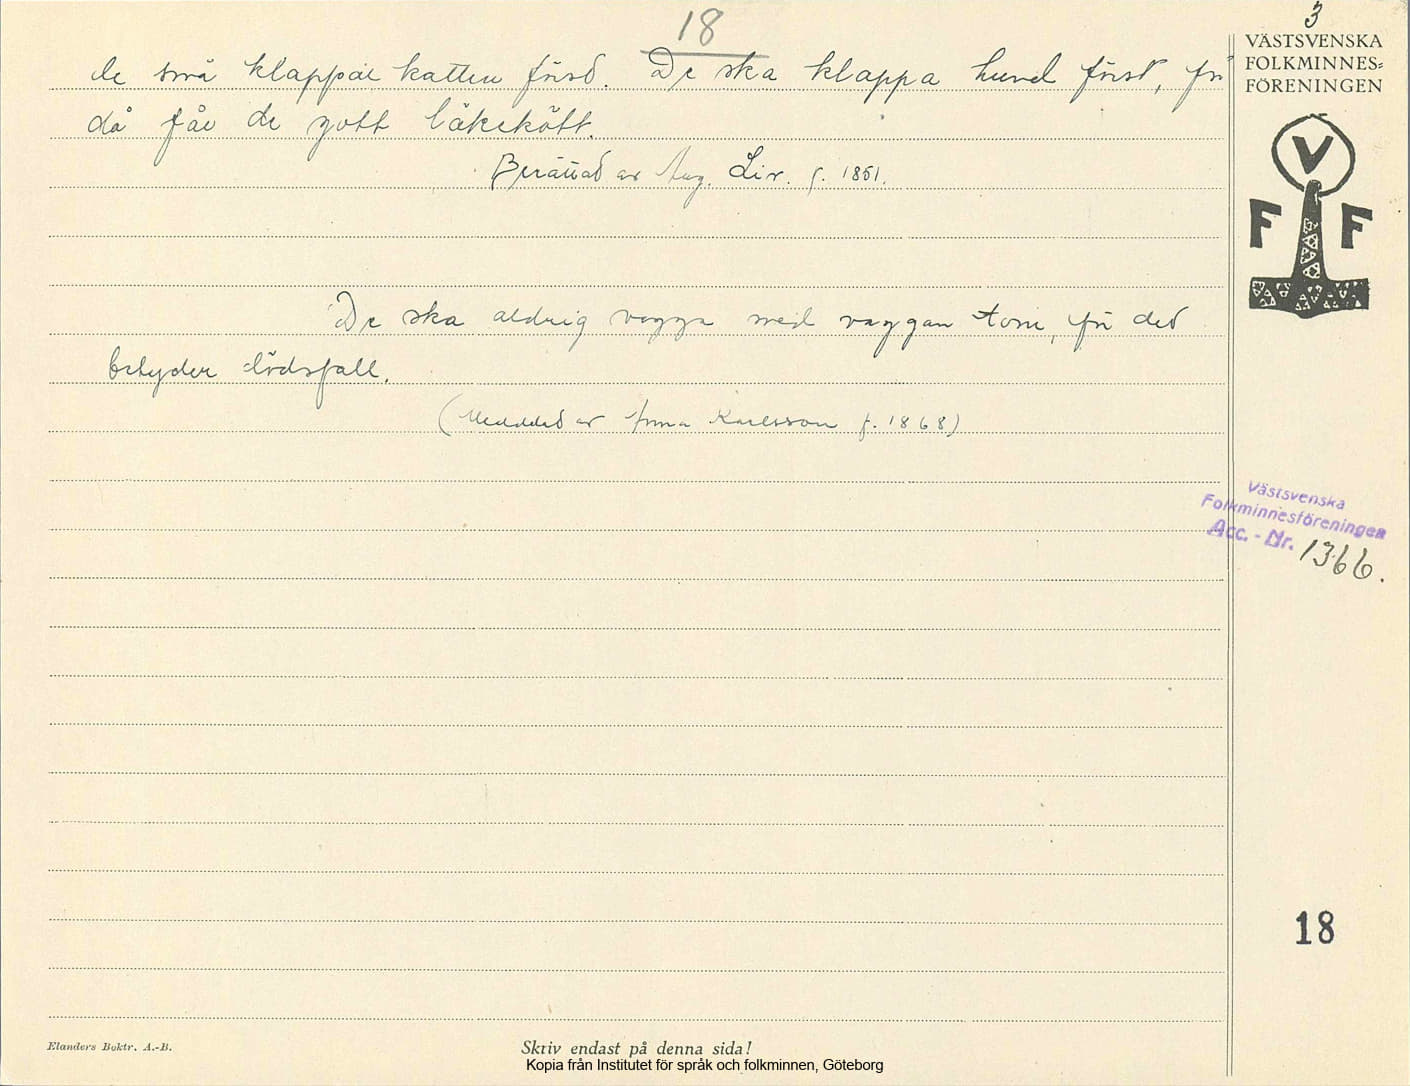 18
3
VÄSTSVENSKA
FOLKMINNES=
FÖRENINGEN
de små klappar katten först. De ska klappa hund först, för
då får de gott läkekött.
Berättad av Aug. Lir. f. 1851.
V
F F
De ska aldrig vagga med vaggan tom, för det
betyder dödsfall.
(Meddelad av Anna Karlsson f. 1868)
Västsvenska
Folkminnesföreningen
Acc. - Nr. 1366.
18
Elanders Boktr. A.-B.
Skriv endast på denna sida!
Kopia från Institutet för språk och folkminnen, Göteborg